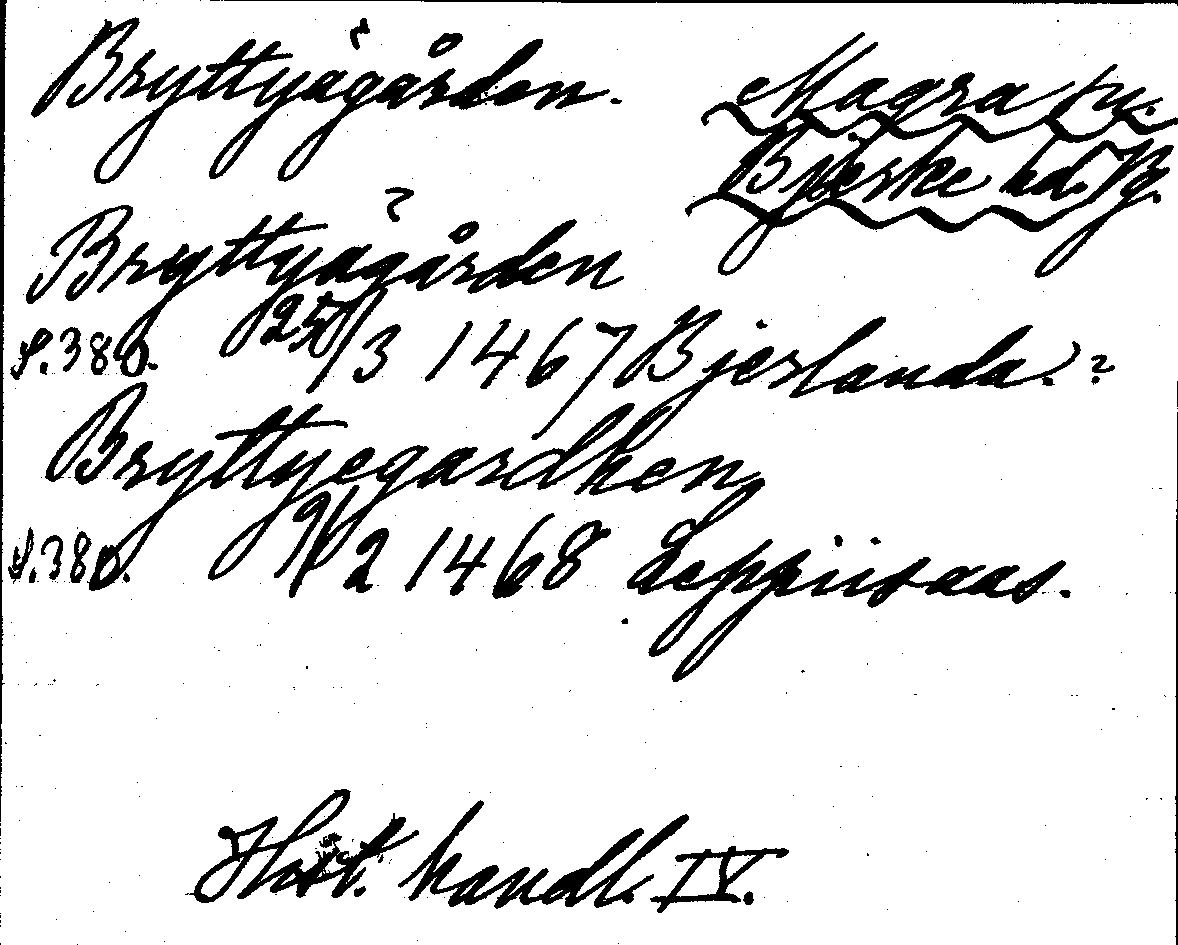 Bryttyägården. Magra sn.
Bjerke hd. Äg.
Bryttyägården
S.380. 25/3 1467 Bjerlanda.?
Bryttyegardhen
S.380. 9/2 1468 Leppiisaas.
Hist. handl. IV.